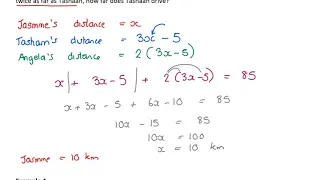 twice as far as Tashaan, how far does Tashaan drive?
Jasmne's distance = x
Tasham's distance = 3x - 5
Angela's distance = 2 (3x-5)
x + 3x - 5 + 2(3x-5) = 85
x + 3x - 5 + 6x - 10 = 85
10x - 15 = 85
10x = 100
x = 10 km
Jasmne = 10 km